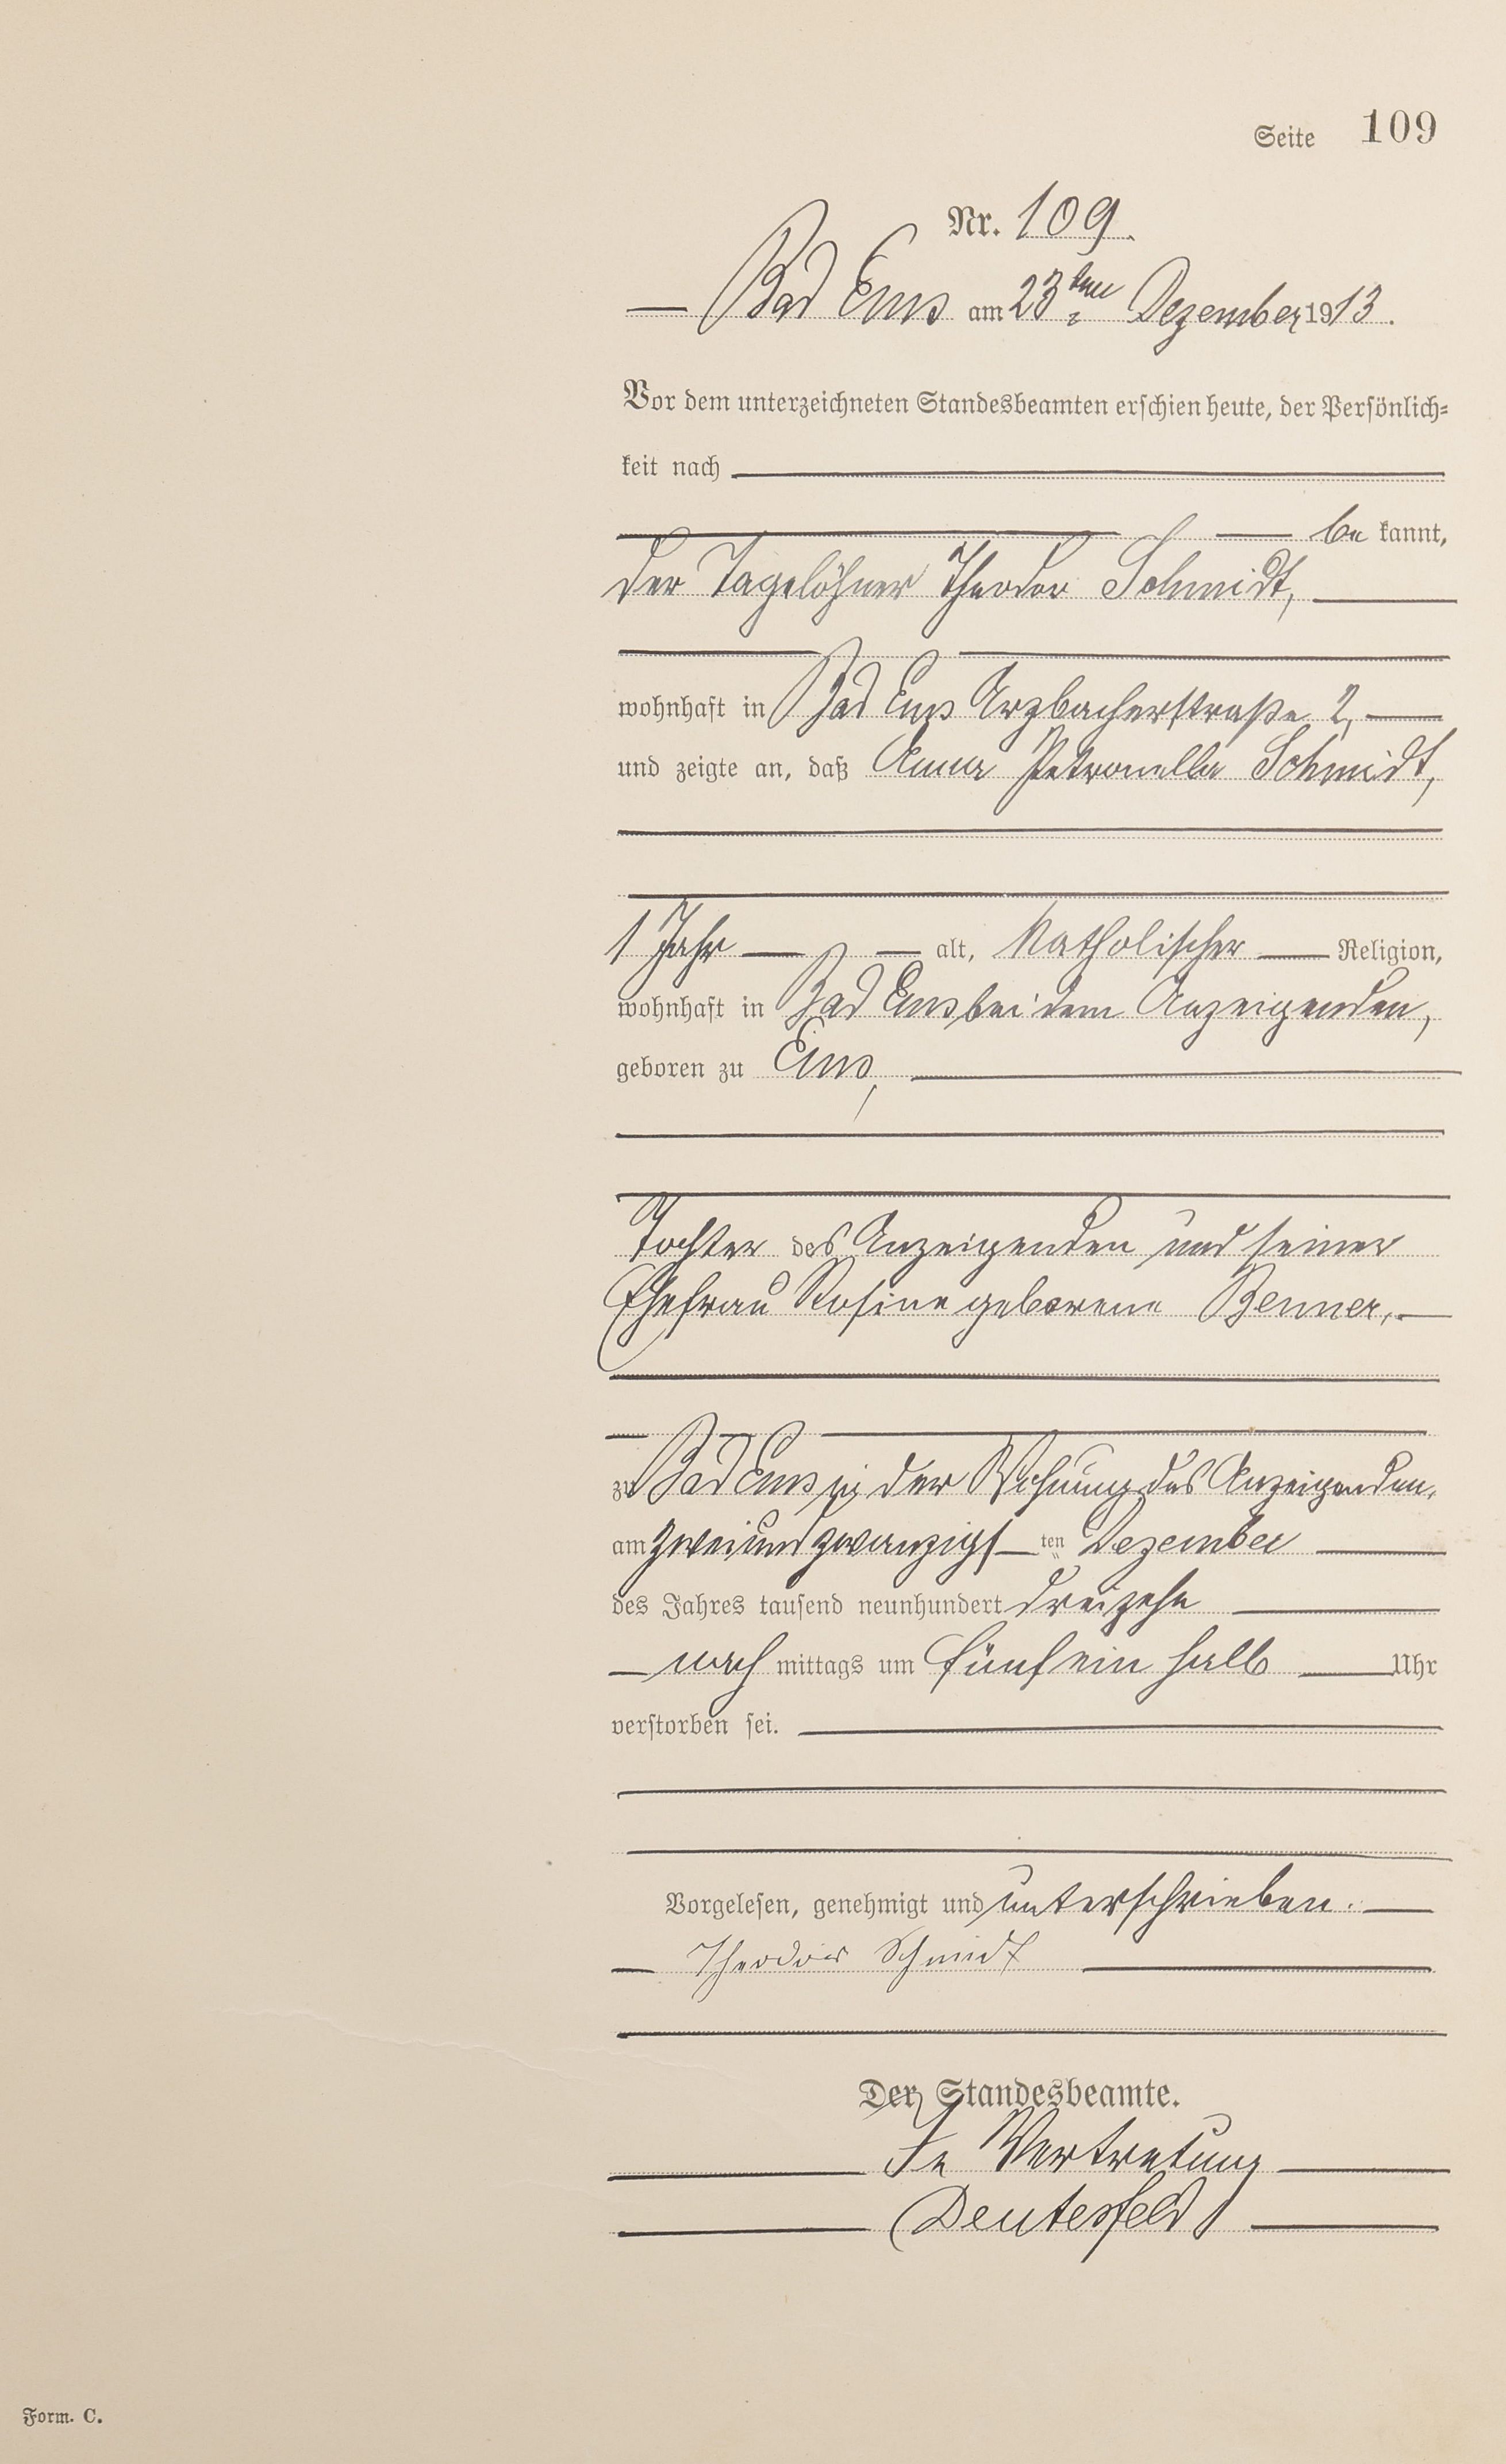 Seite 109
Nr. 109.
Bad Ems am 23ten Dezember 1913.
Vor dem unterzeichneten Standesbeamten erschien heute, der Persönlich-
keit nach
be kannt,
der Tagelöhner Theodor Schmidt,
wohnhaft in Bad Ems Arzbacherstraße 2,
und zeigte an, daß Anna Petronella Schmidt,
1 Jahr alt, Katholischer Religion,
wohnhaft in Bad Ems bei dem Anzeigenden,
geboren zu Ems,
Tochter des Anzeigenden und seiner
Ehefrau Rosine geborene Benner,
zu Bad Ems in der Wohnung des Anzeigenden,
am zweiundzwanzigsten Dezember
des Jahres tausend neunhundert dreizehn
nach mittags um fünf ein halb Uhr
verstorben sei.
Vorgelesen, genehmigt und unterschrieben.
Theodor Schmidt
Der Standesbeamte.
In Vertretung
Deutesfeld
Form. C.